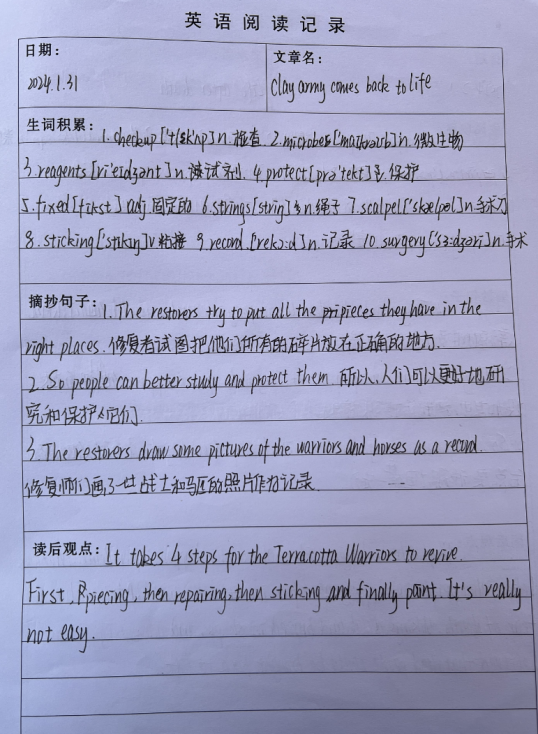 英语阅读记录
日期：
文章名：
2024.1.31
Clay army comes back to life
生词积累：1.checkup['tʃekʌp]n.检查 2.microbes['maɪkrəʊb]n.微生物
3.reagents[ri'eɪdʒənt]n.试剂 4.protect[prə'tekt]v.保护
5.fixed[fɪkst]adj.固定的 6.strings[strɪŋ]n.绳子 7.scalpel['skælpəl]n.手术刀
8.sticking['stɪkɪŋ]v粘接 9.record.['rekɔ:d]n.记录 10 surgery['sɜ:dʒəri]n.手术
摘抄句子：1.The restorers try to put all the pieces they have in the
right places.修复者试图把他们所有的碎片放在正确的地方.
2.So people can better study and protect them 所以,人们可以更好地研
究和保护它们.
3.The restorers draw some pictures of the warriors and horses as a record.
修复师们画了一些战士和马匹的照片作为记录
读后观点：It takes 4 steps for the Terracotta Warriors to revive.
First, piecing, then repairing, then sticking and finally paint. It's really
not easy.